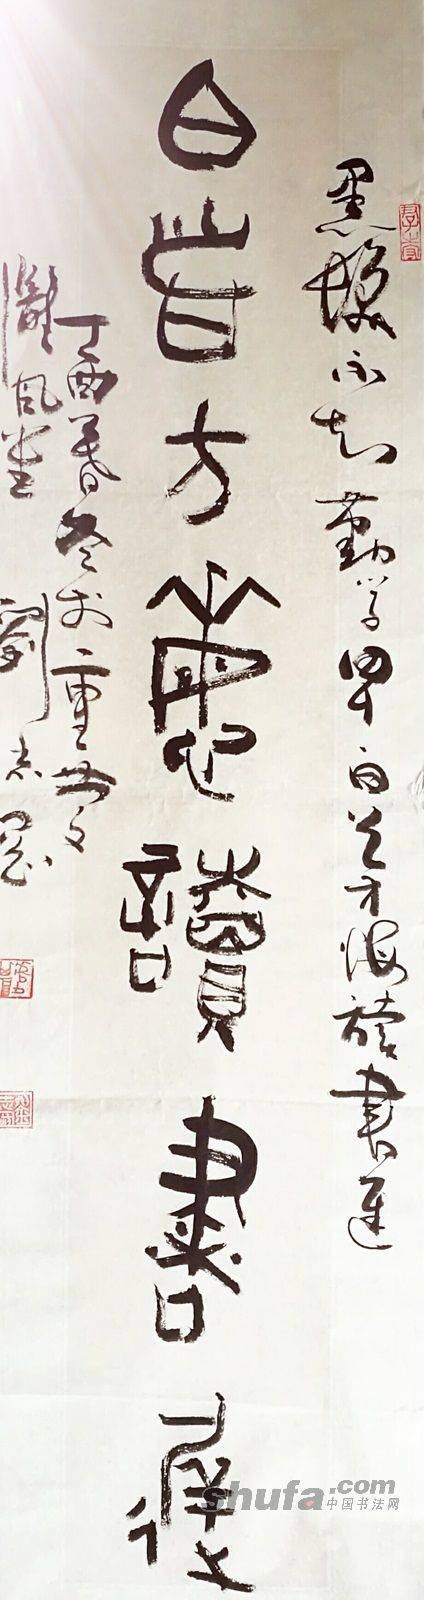 黑髮不知勤學早白首方悔讀書遲
白首方悔讀書遲
丁酉暮冬於重慶
風堂 劉志
shufa.com
中国书法网